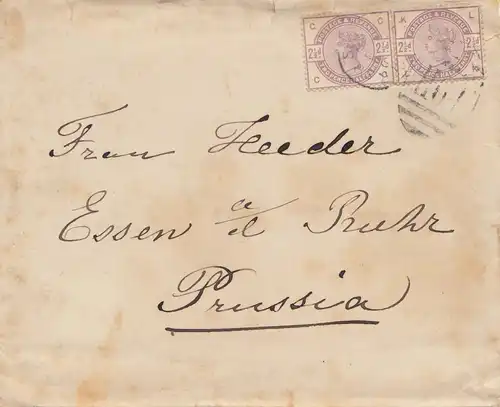 POSTAGE & REVENUE POSTAGE & REVENUE
2½d 2½d 2½d 2½d
Frau Heeder
Essen a/d Ruhr
Prussia